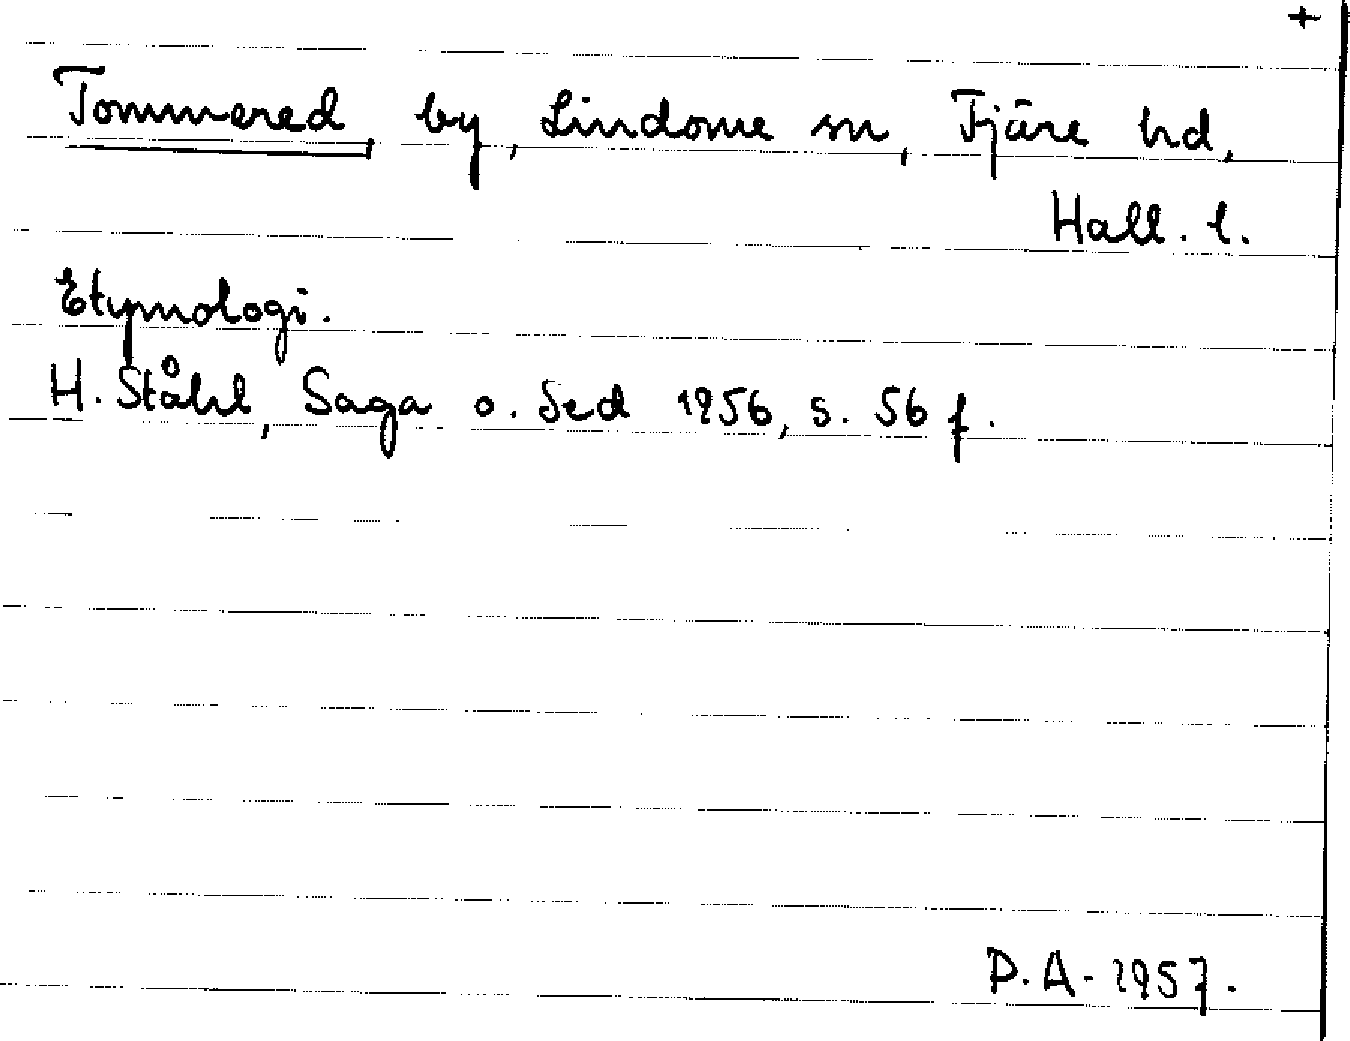 +
Tommered, by, Lindome sn, Fjäre hd,
Hall. l.
Etymologi.
H. Ståhl, Saga o. Sed 1956, s. 56 f.
D. A. 1957.